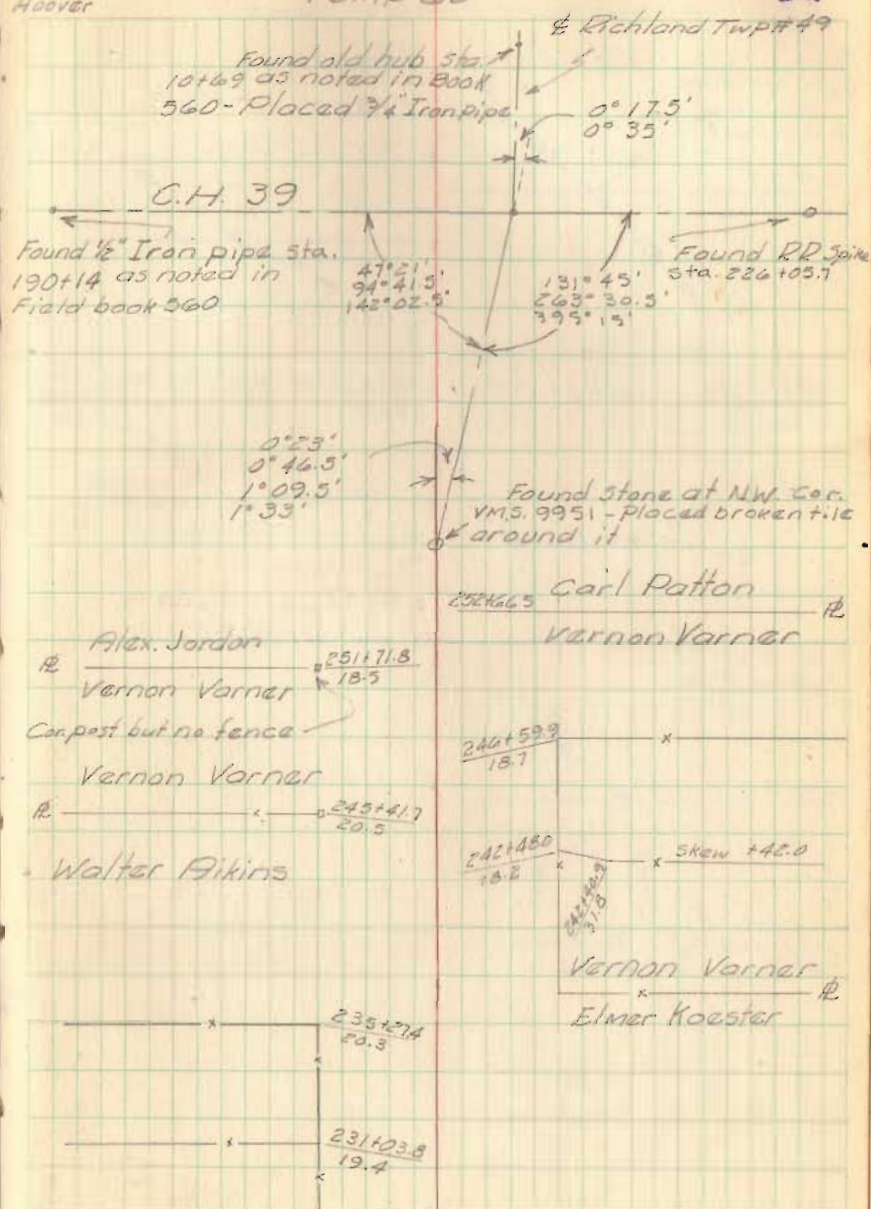 Hoover
℄ Richland Twp #49
Found old hub sta.
10+69 as noted in Book
560 - Placed 3/4" Iron pipe
0° 17.5'
0° 35'
C.H. 39
Found 1/2" Iron pipe sta.
190+14 as noted in
Field book 560
47° 21'
94° 41.5'
142° 02.5'
131° 45'
263° 30.5'
395° 15'
Found RR Spike
sta. 226+05.7
0° 23'
0° 46.5'
1° 09.5'
1° 33'
Found Stone at NW Cor.
V.M.S. 9951 - Placed broken tile
around it
252+66.5
Carl Patton
PL
Vernon Varner
Alex. Jordan
PL
251+71.8
18.5
Vernon Varner
Cor. post but no fence
246+59.9
18.7
Vernon Varner
PL
245+41.7
20.5
242+48.0
18.2
Skew +42.0
Walter Aikins
242+40.9
31.8
Vernon Varner
PL
Elmer Koester
235+27.4
20.3
231+03.8
19.4